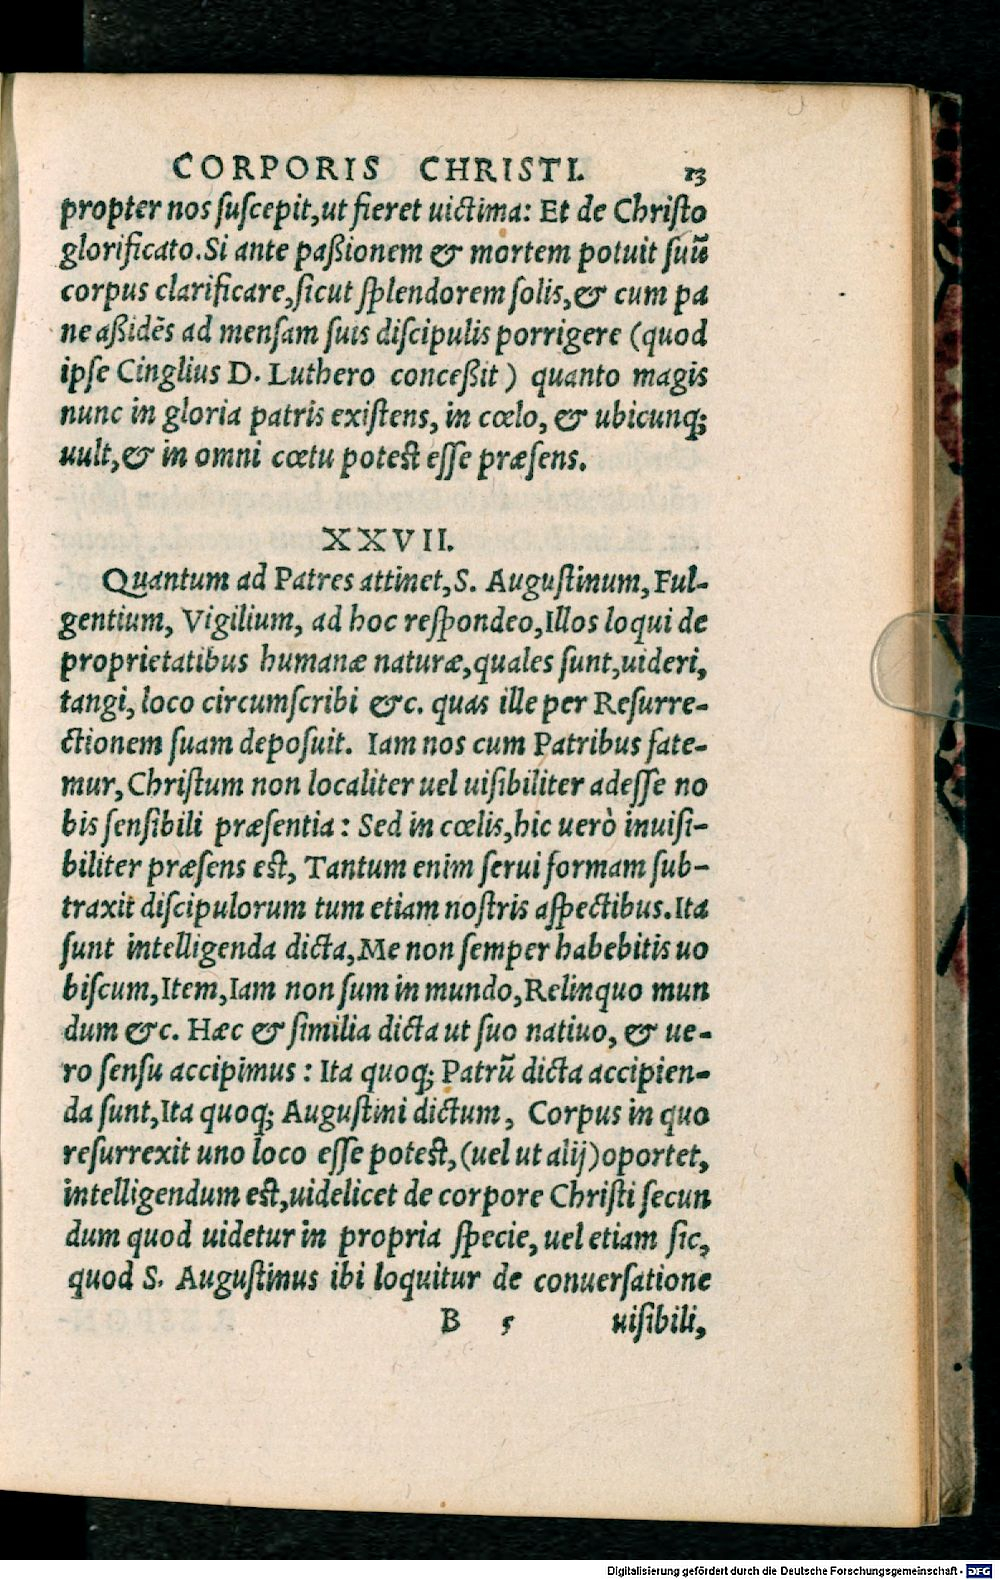 CORPORIS CHRISTI. 13
propter nos ſuſcepit,ut fieret uictima: Et de Chriſto
glorificato.Si ante paßionem & mortem potuit ſuũ
corpus clarificare,ſicut ſplendorem ſolis,& cum pa
ne aßidẽs ad menſam ſuis diſcipulis porrigere (quod
ipſe Cinglius D. Luthero conceßit) quanto magis
nunc in gloria patris exiſtens, in cœlo, & ubicunq;
uult,& in omni cœtu poteſt eſſe præſens.
XXVII.
Quantum ad Patres attinet,S. Auguſtinum, Ful-
gentium, Vigilium, ad hoc reſpondeo,Illos loqui de
proprietatibus humanæ naturæ,quales ſunt,uideri,
tangi, loco circumſcribi &c. quas ille per Reſurre-
ctionem ſuam depoſuit. Iam nos cum Patribus fate-
mur, Chriſtum non localiter uel uiſibiliter adeſſe no
bis ſenſibili præſentia: Sed in cœlis,hic uerò inuiſi-
biliter præſens eſt, Tantum enim ſerui formam ſub-
traxit diſcipulorum tum etiam noſtris aſpectibus.Ita
ſunt intelligenda dicta,Me non ſemper habebitis uo
biſcum,Item,Iam non ſum in mundo,Relinquo mun
dum &c. Hæc & ſimilia dicta ut ſuo natiuo, & ue-
ro ſenſu accipimus: Ita quoq; Patrũ dicta accipien-
da ſunt,Ita quoq; Auguſtini dictum, Corpus in quo
reſurrexit uno loco eſſe poteſt,(uel ut alij)oportet,
intelligendum eſt,uidelicet de corpore Chriſti ſecun
dum quod uidetur in propria ſpecie, uel etiam ſic,
quod S. Auguſtinus ibi loquitur de conuerſatione
B 5 uiſibili,
Digitalisierung gefördert durch die Deutsche Forschungsgemeinschaft - DFG